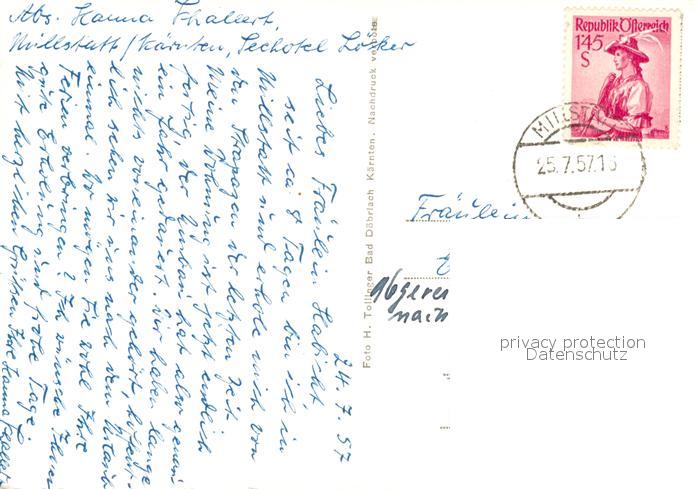 Abs. Hanna Thalert,
Millstatt/Kärnten, Seehotel Löcker
24.7.57
Liebes Fräulein Habicht,
seit ca 8 Tagen bin ich in
Millstatt und erhole mich von
den Strapazen der letzten Zeit.
Meine Wohnung ist jetzt endlich
fertig, der Umbau hat also genau
ein Jahr gedauert. Wir haben lange
nichts voneinander gehört, hoffent-
lich sehen wir uns nach dem Urlaub
einmal. Wo mögen Sie wohl Ihre
Ferien verbringen? Ich wünsche Ihnen
gute Erholung und frohe Tage.
Mit herzlichen Grüßen Ihre Hanna
Foto H. Tollinger Bad Döbriach Kärnten. Nachdruck verboten
Republik Österreich
1'45
S
MILLST
25.7.57.1
Fräulein
Abgereist
nach
privacy protection
Datenschutz